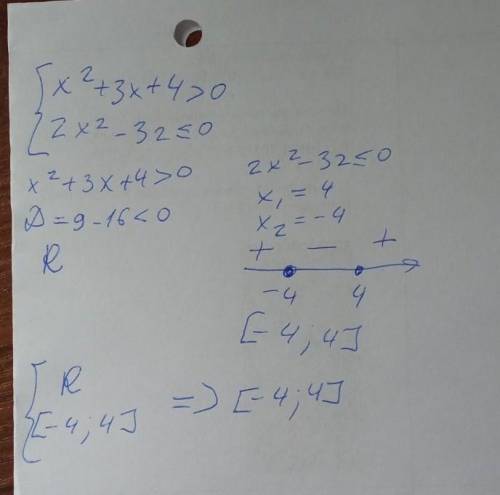 { x² + 3x + 4 > 0
{ 2x² - 32 ≤ 0
x² + 3x + 4 > 0
D = 9 - 16 < 0
R
2x² - 32 ≤ 0
x₁ = 4
x₂ = -4
+ - +
-4 4
[-4; 4]
{ R
{ [-4; 4] => [-4; 4]